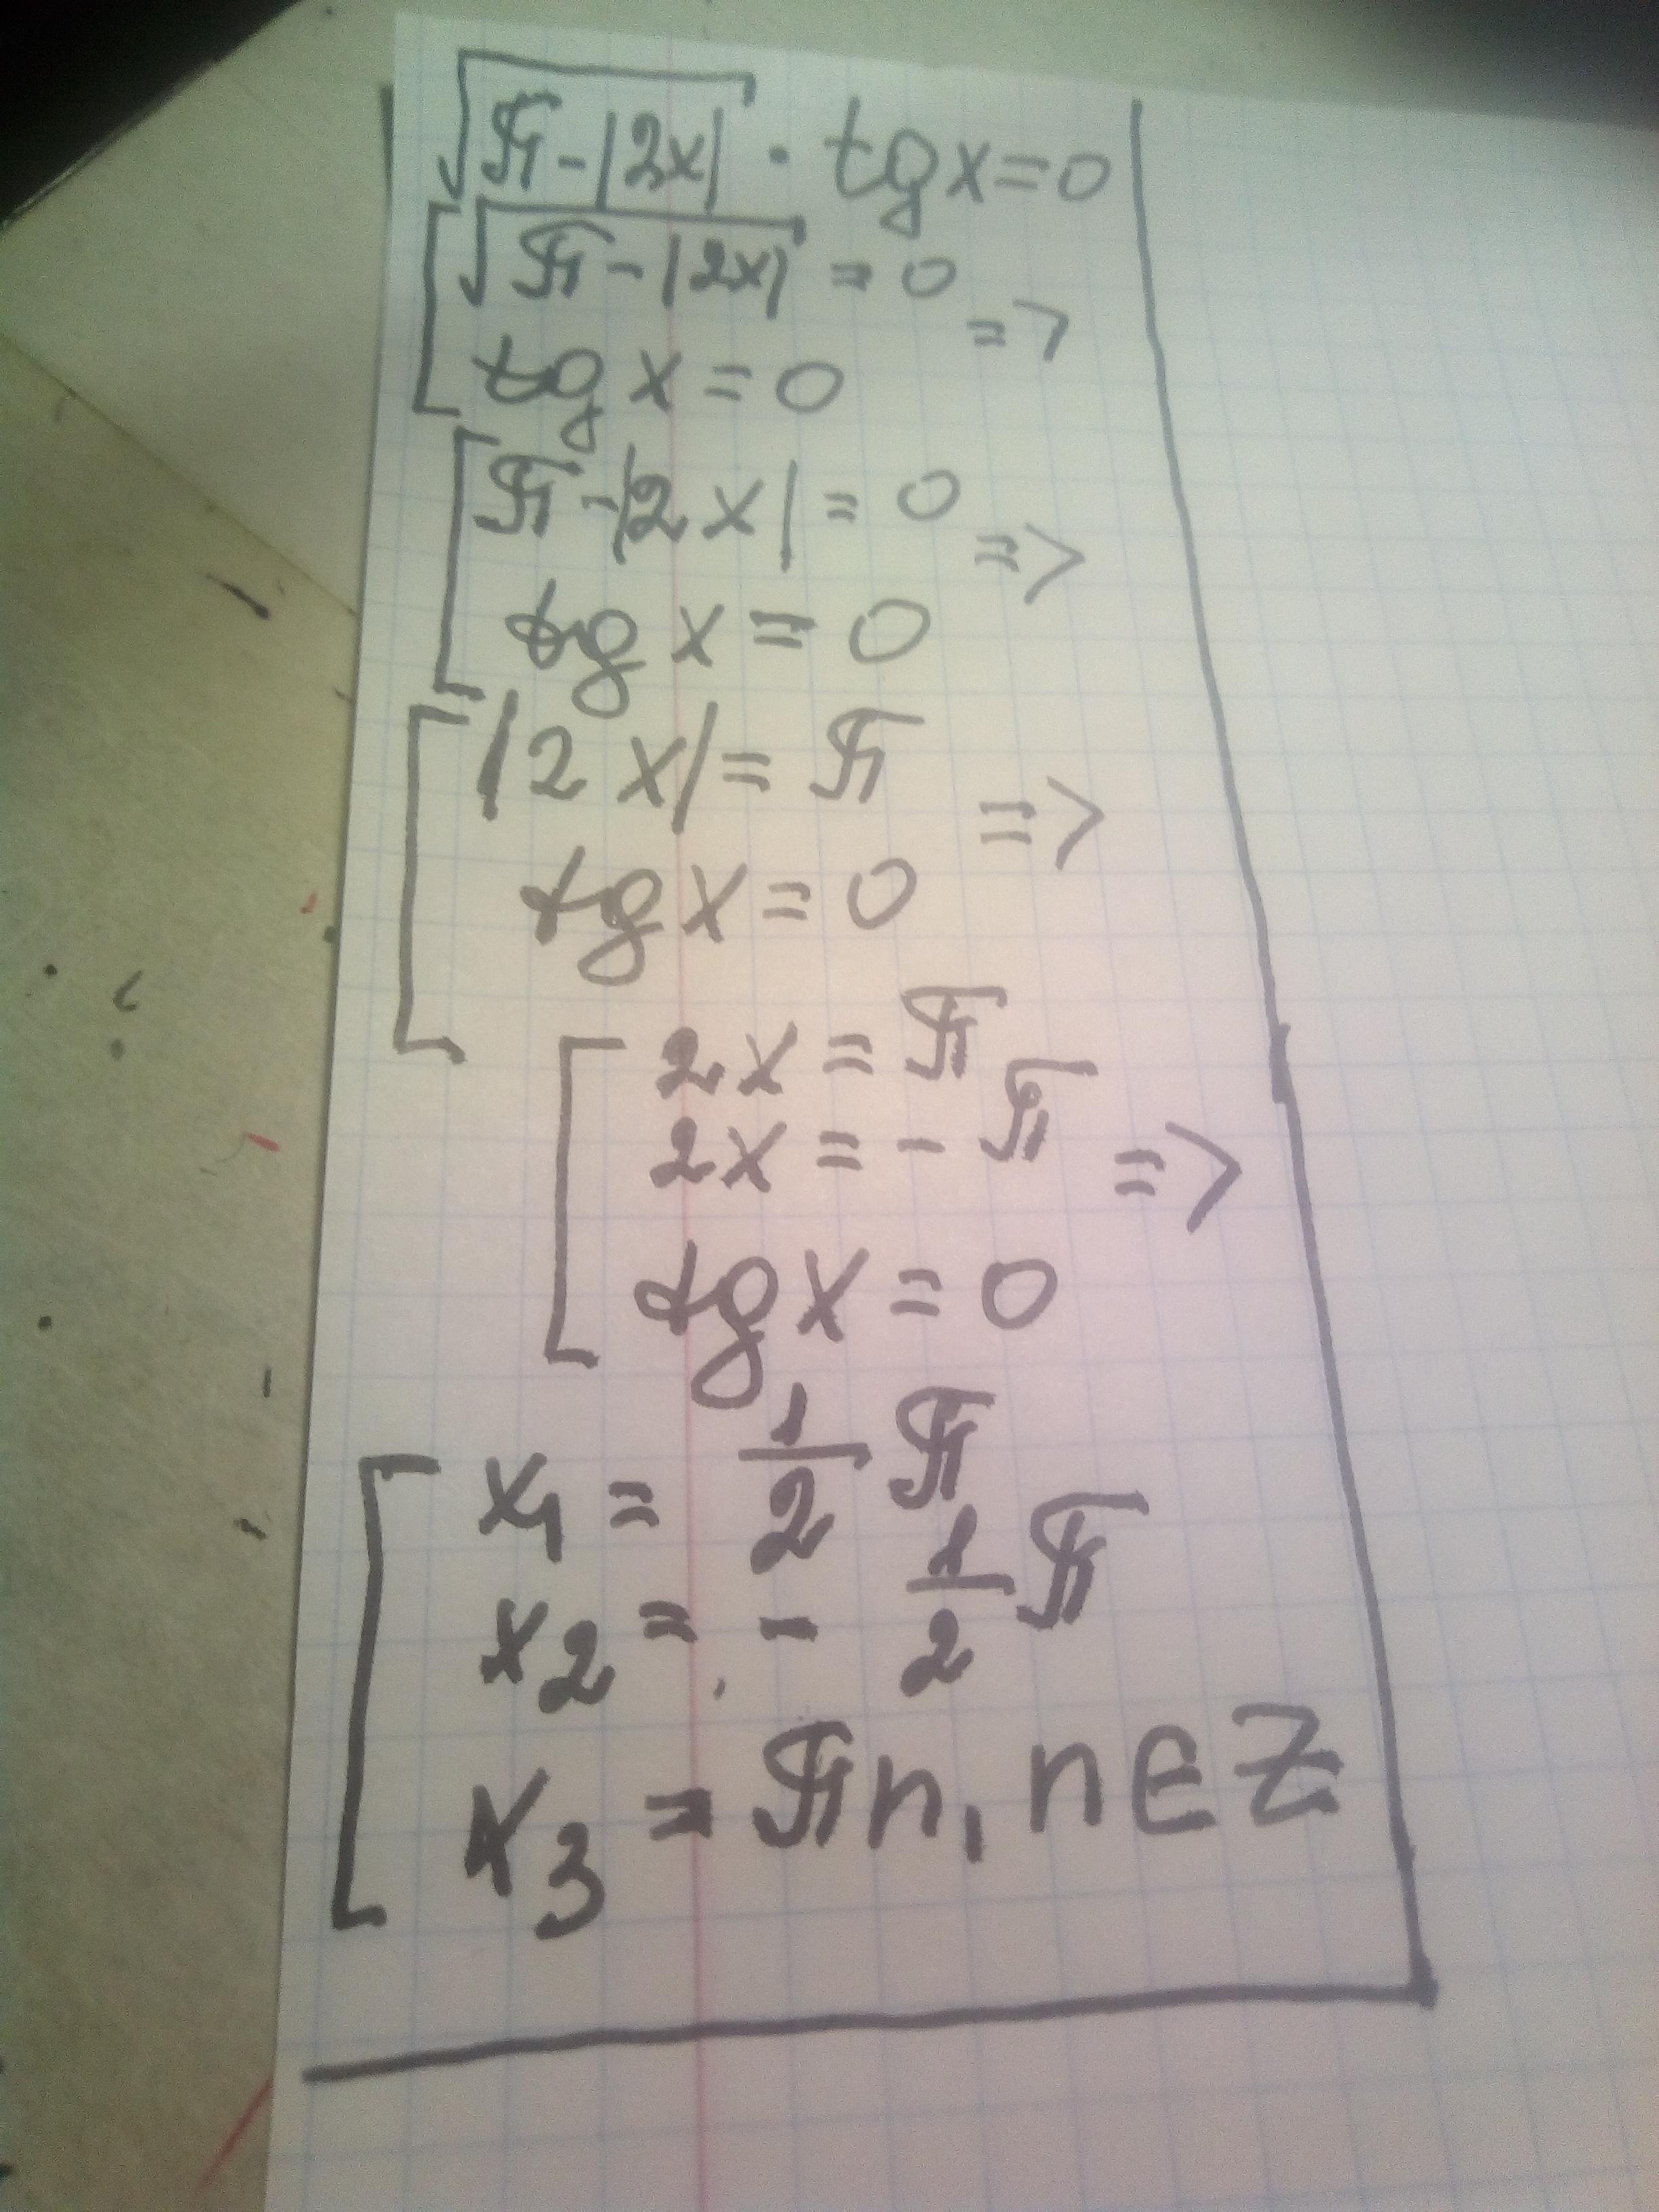 √(π-|2x|) · tg x = 0
[ √(π-|2x|) = 0
=>
tg x = 0
[ π-|2x| = 0
=>
tg x = 0
[ |2x| = π
=>
tg x = 0
[ 2x = π
2x = - π =>
tg x = 0
[ x₁ = 1/2 π
x₂ = - 1/2 π
x₃ = πn, n ∈ Z